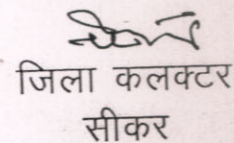 जिला कलक्टर
सीकर